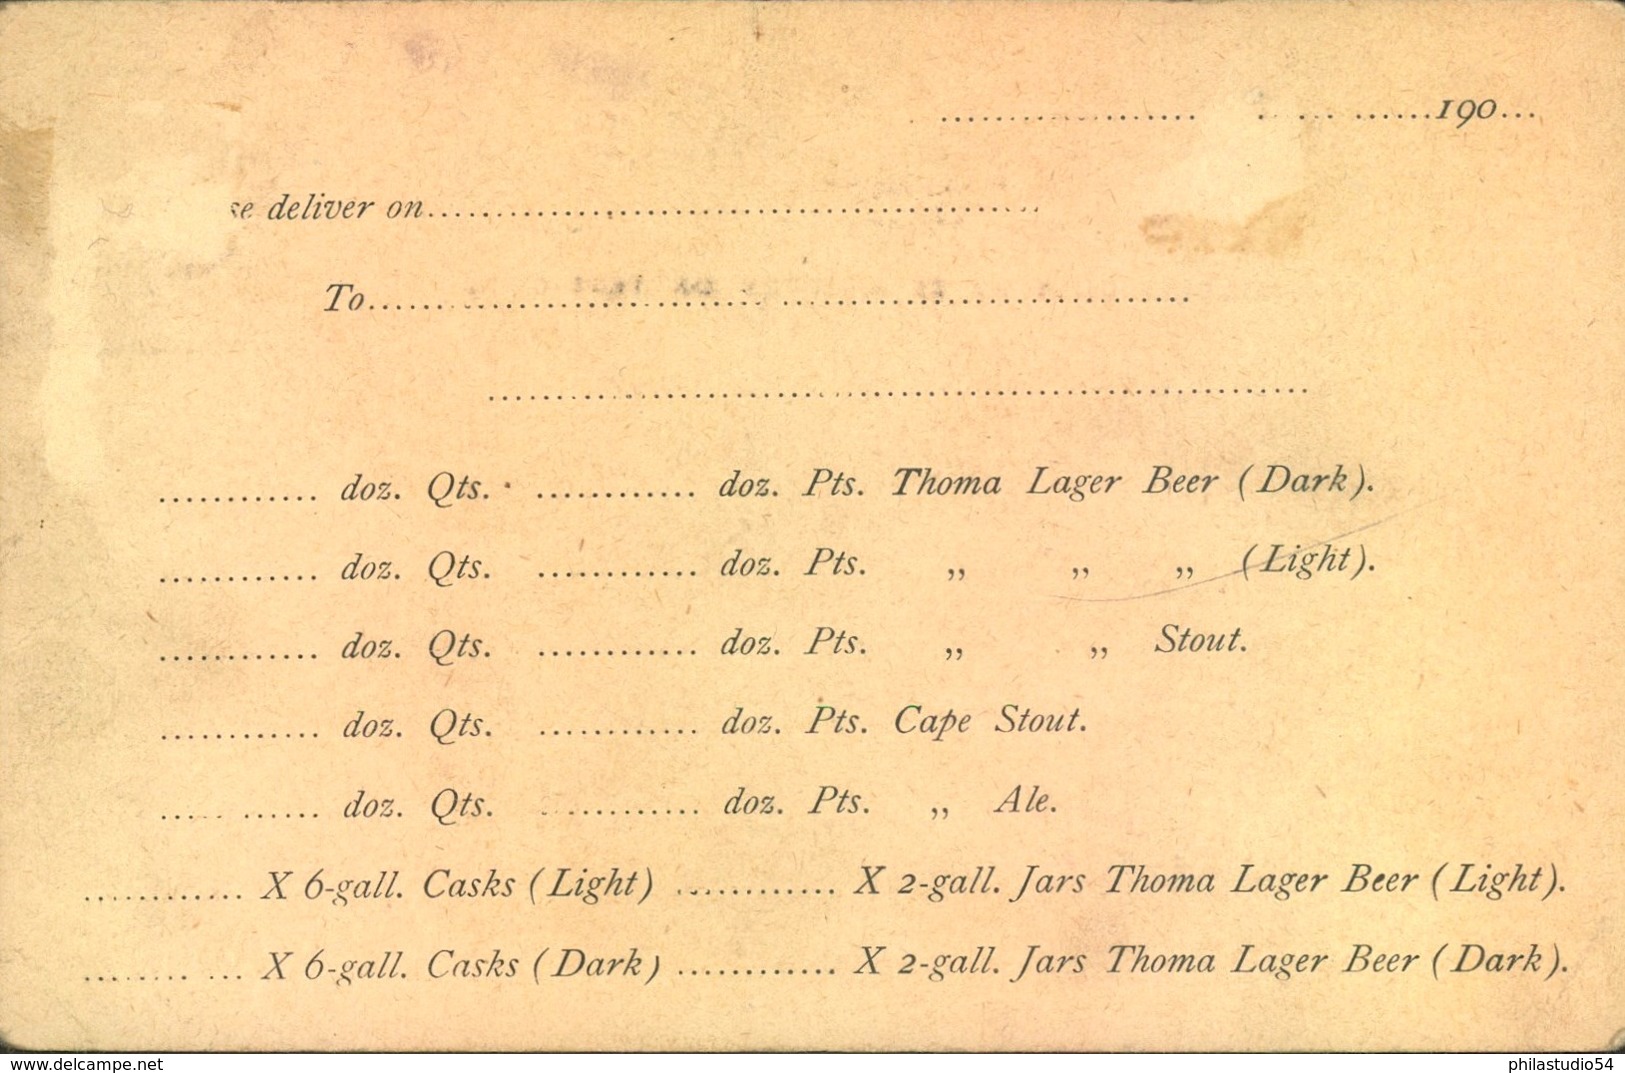 ..................... . ... ......190...
se deliver on..............................................
To..............................................................
.............................................................
............ doz. Qts. ............ doz. Pts. Thoma Lager Beer (Dark).
............ doz. Qts. ............ doz. Pts. „ „ „ (Light).
............ doz. Qts. ............ doz. Pts. „ „ Stout.
............ doz. Qts. ............ doz. Pts. Cape Stout.
............ doz. Qts. ............ doz. Pts. „ Ale.
............ X 6-gall. Casks (Light) ............ X 2-gall. Jars Thoma Lager Beer (Light).
............ X 6-gall. Casks (Dark) ............ X 2-gall. Jars Thoma Lager Beer (Dark).
www.delcampe.net philastudio54